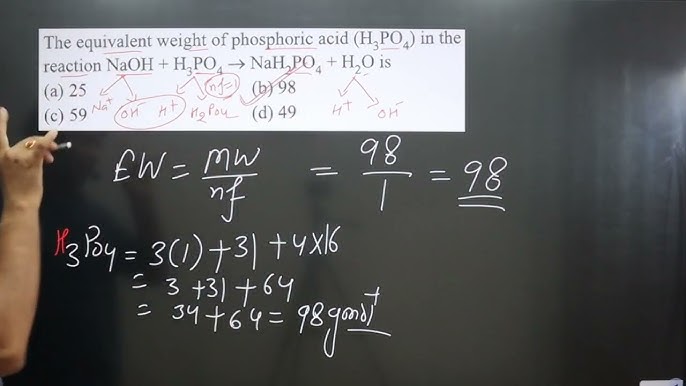 The equivalent weight of phosphoric acid (H₃PO₄) in the
reaction NaOH + H₃PO₄ → NaH₂PO₄ + H₂O is
(a) 25 (b) 98
nf=
(c) 59 (d) 49
Na⁺ OH⁻ H⁺ H₂PO₄ H⁺ OH⁻
EW = MW/nf = 98/1 = 98
H₃PO₄ = 3(1) + 31 + 4×16
= 3 + 31 + 64
= 34 + 64 = 98 gmol⁻¹